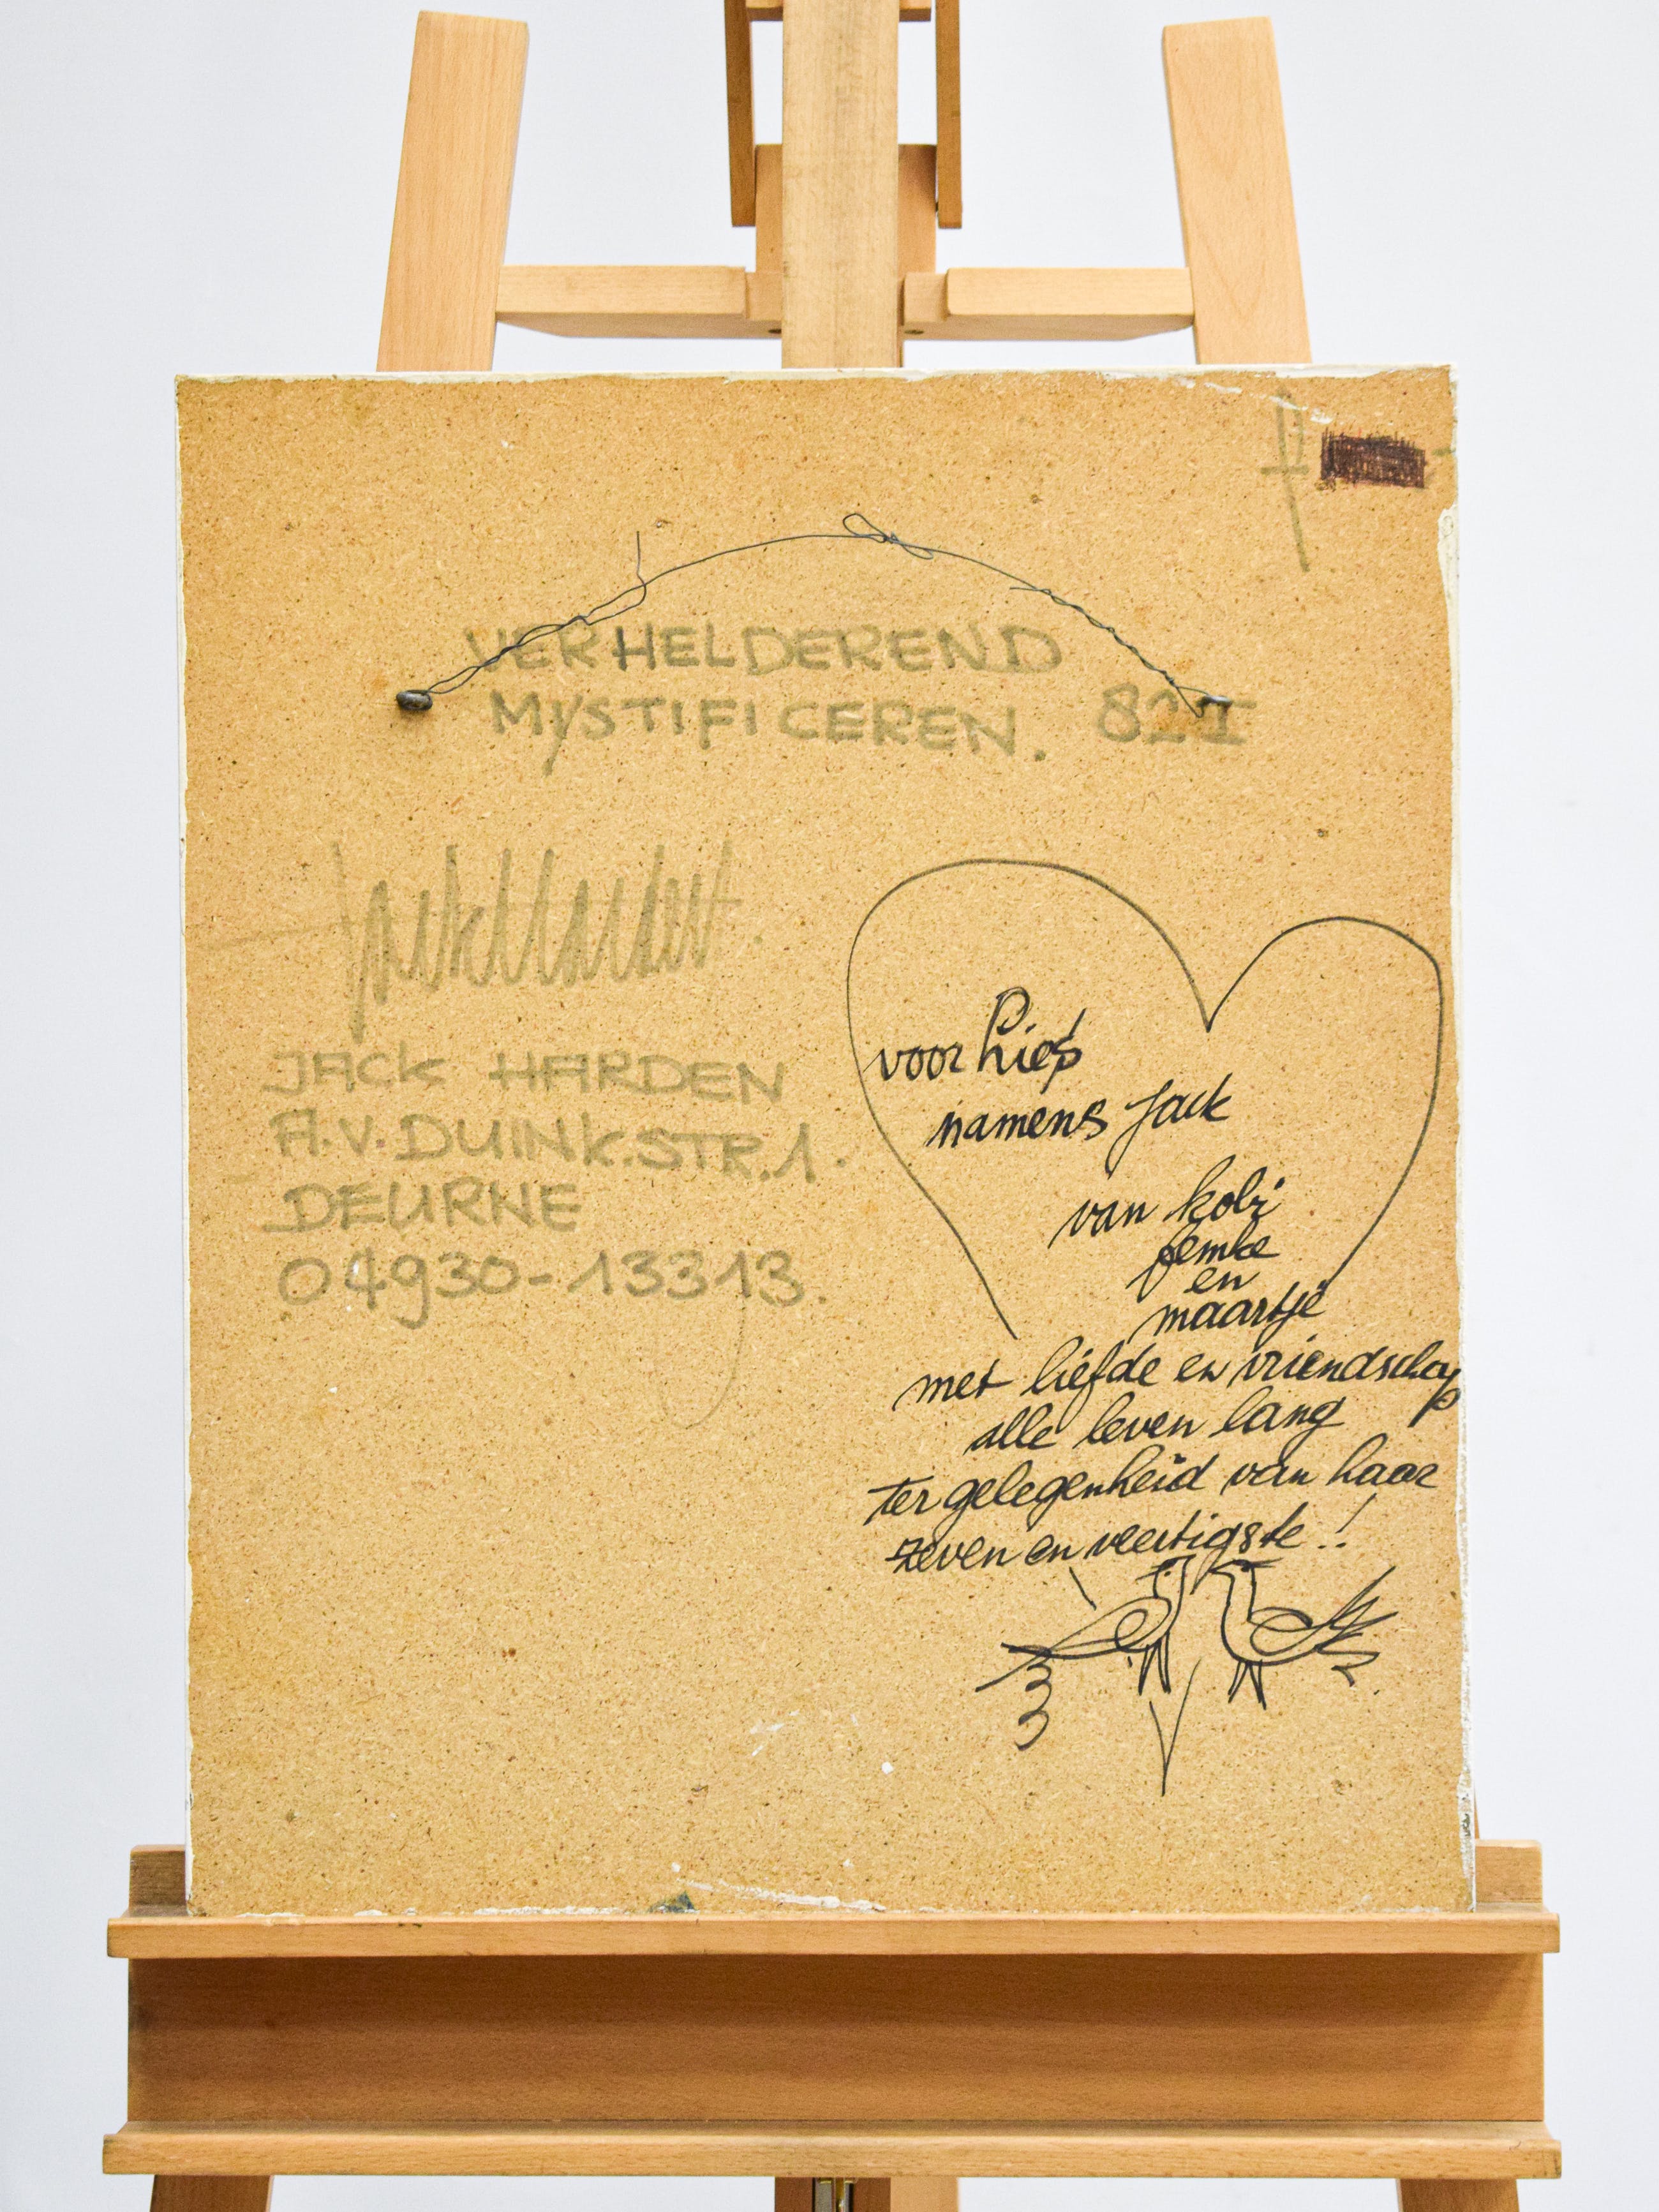 VERHELDEREND
MYSTIFICEREN. 82 I
Jack Harden
JACK HARDEN
A.V. DUINK.STR.1.
DEURNE
04930-13313.
voor Lies
namens Jack
van kobi
femke
en
maartje
met liefde en vriendschap
alle leven lang
ter gelegenheid van haar
zeven en veertigste !